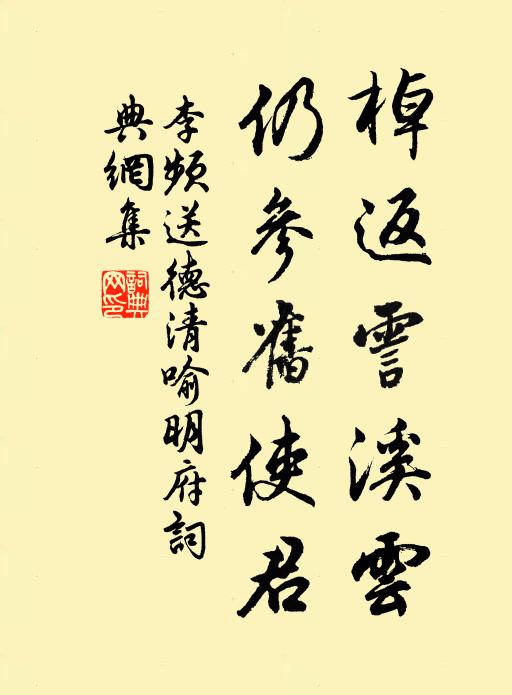 棹返霅溪雲
仍參舊使君
李頻送德清喻明府詞
典網集
詞典網印